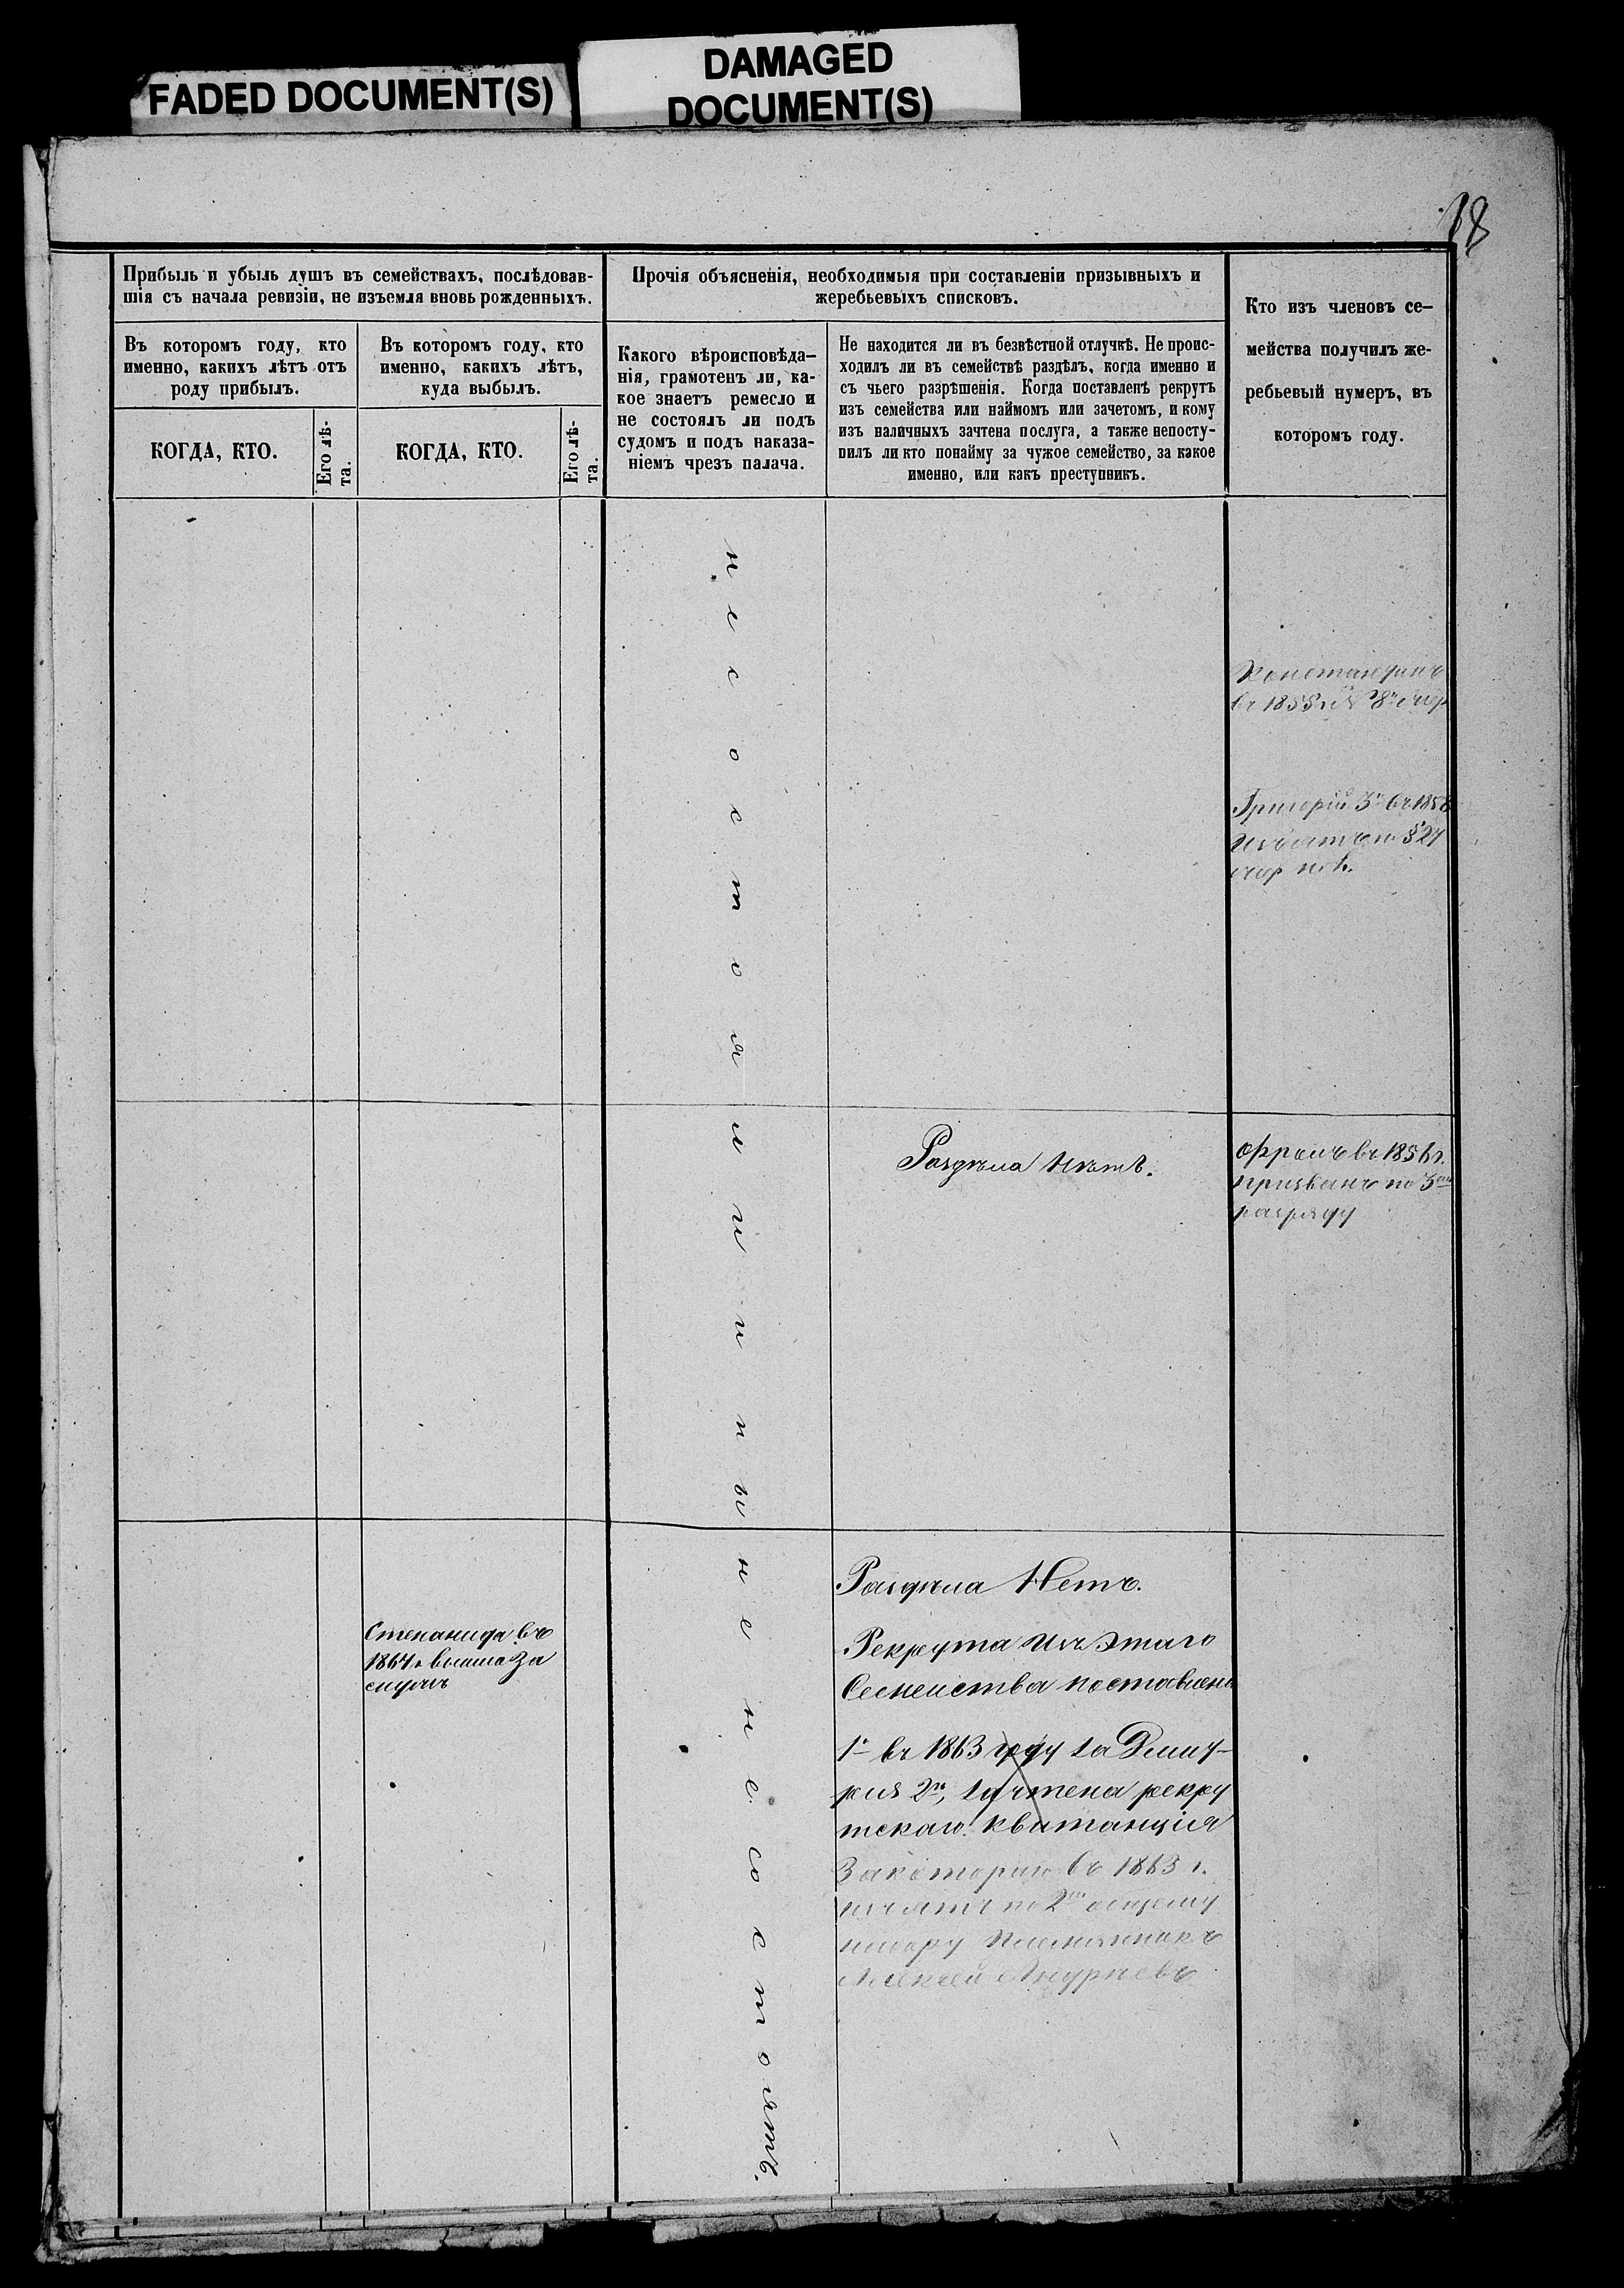 FADED DOCUMENT(S)
DAMAGED
DOCUMENT(S)
18
Прибыль и убыль душъ въ семействахъ, послѣдовав-
шія съ начала ревизіи, не изъемля вновь рожденныхъ.
Въ которомъ году, кто
именно, какихъ лѣтъ отъ
роду прибылъ.
КОГДА, КТО.
Его лѣ-
та.
Въ которомъ году, кто
именно, какихъ лѣтъ,
куда выбылъ.
КОГДА, КТО.
Его лѣ-
та.
Прочія объясненія, необходимыя при составленіи призывныхъ и
жеребьевыхъ списковъ.
Какого вѣроисповѣда-
нія, грамотенъ ли, ка-
кое знаетъ ремесло и
не состоялъ ли подъ
судомъ и подъ наказа-
ніемъ чрезъ палача.
Не находится ли въ безвѣстной отлучкѣ. Не проис-
ходилъ ли въ семействѣ раздѣлъ, когда именно и
съ чьего разрѣшенія. Когда поставленъ рекрутъ
изъ семейства или наймомъ или зачетомъ, и кому
изъ наличныхъ зачтена послуга, а также непосту-
пилъ ли кто понайму за чужое семейство, за какое
именно, или какъ преступникъ.
Кто изъ членовъ се-
мейства получилъ же-
ребьевый нумеръ, въ
которомъ году.
не состояли и ны не не состоятъ.
Константинъ
въ 1855
Григорій 3й въ 1858
Изъятъ по §27
Раздѣла Нѣтъ.
въ 1856 г.
призванъ по 3му
разряду
Степанида въ
1864 г вышла За
мужъ
Раздѣла Нетъ.
Рекрута изъ этаго
Семейства поставлено
1й въ 1863 году за
2го, зачтена рекру
тскаго квитанція
За которую въ 1863 г.
изъятъ по 2му общему
набору Племянникъ
Алексѣй Андреевъ